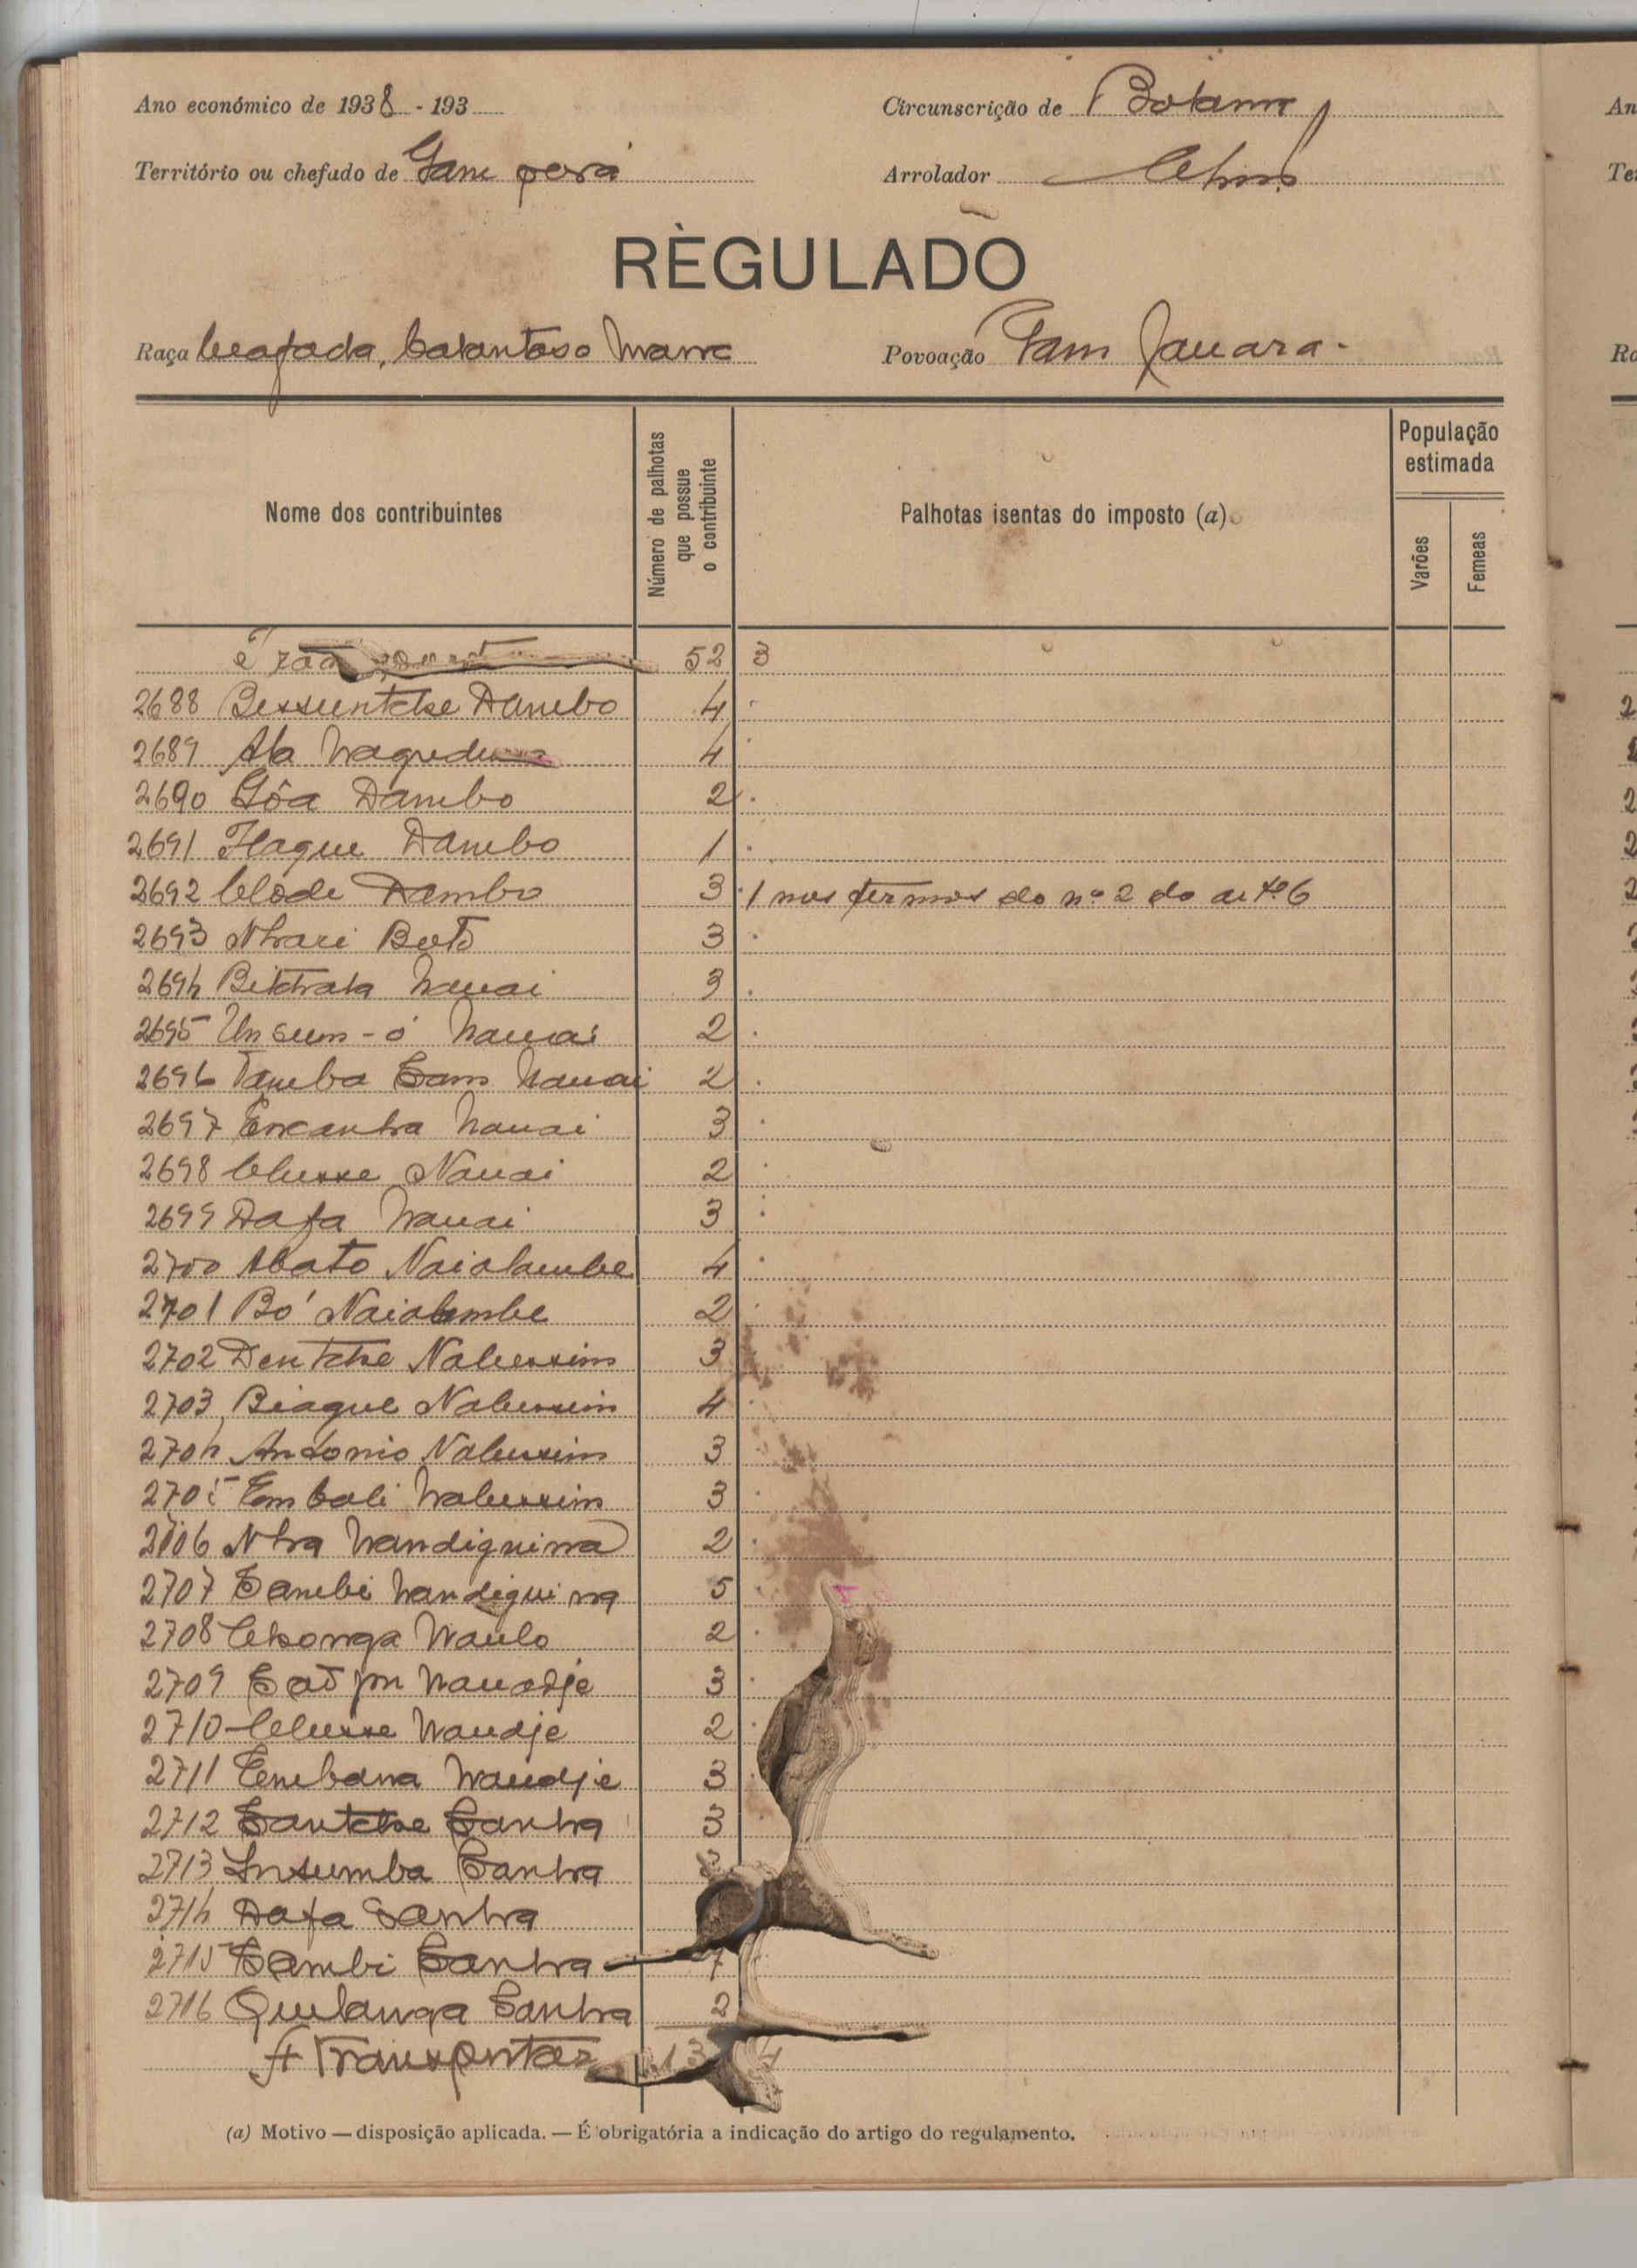 Ano económico de 1938 - 193
Circunscrição de
Território ou chefado de Gam
Arrolador
REGULADO
Raça
Povoação Gam Jauara.
Nome dos contribuintes
Número de palhotas que possue o contribuinte
Palhotas isentas do imposto (a)
População estimada
Varões
Femeas
52 3
2688 Bessuntche Dambo 4
2689 4
2690 Gôa Dambo 2
2691 Dambo 1
2692 Clode Dambo 3 1 nos termos do nº 2 do artº 6
2693 3
2694 Nauai 3
2695 Unsum-ó Nauai 2
2696 Tamba Sam Nauai 2
2697 Encanha Nauai 3
2698 Clusse Nauai 2
2699 Dafa Nauai 3
2700 Abato Naialambe 4
2701 Bó Naialambe 2
2702 Dentche Nabussim 3
2703 Biague Nabussim 4
2704 Antonio Nabussim 3
2705 Embali Nabussim 3
2706 Nha Nandiguina 2
2707 Sambi Nandiguina 5
2708 2
2709 3
2710 Clusse Naudje 2
2711 Naudje 3
2712 Santche Sanha 3
2713 Insumba Sanha
2714 Dafa Sanha
2715 Sambi Sanha 7
2716 Quilanga Sanha 2
A Transportar
(a) Motivo — disposição aplicada. — É obrigatória a indicação do artigo do regulamento.